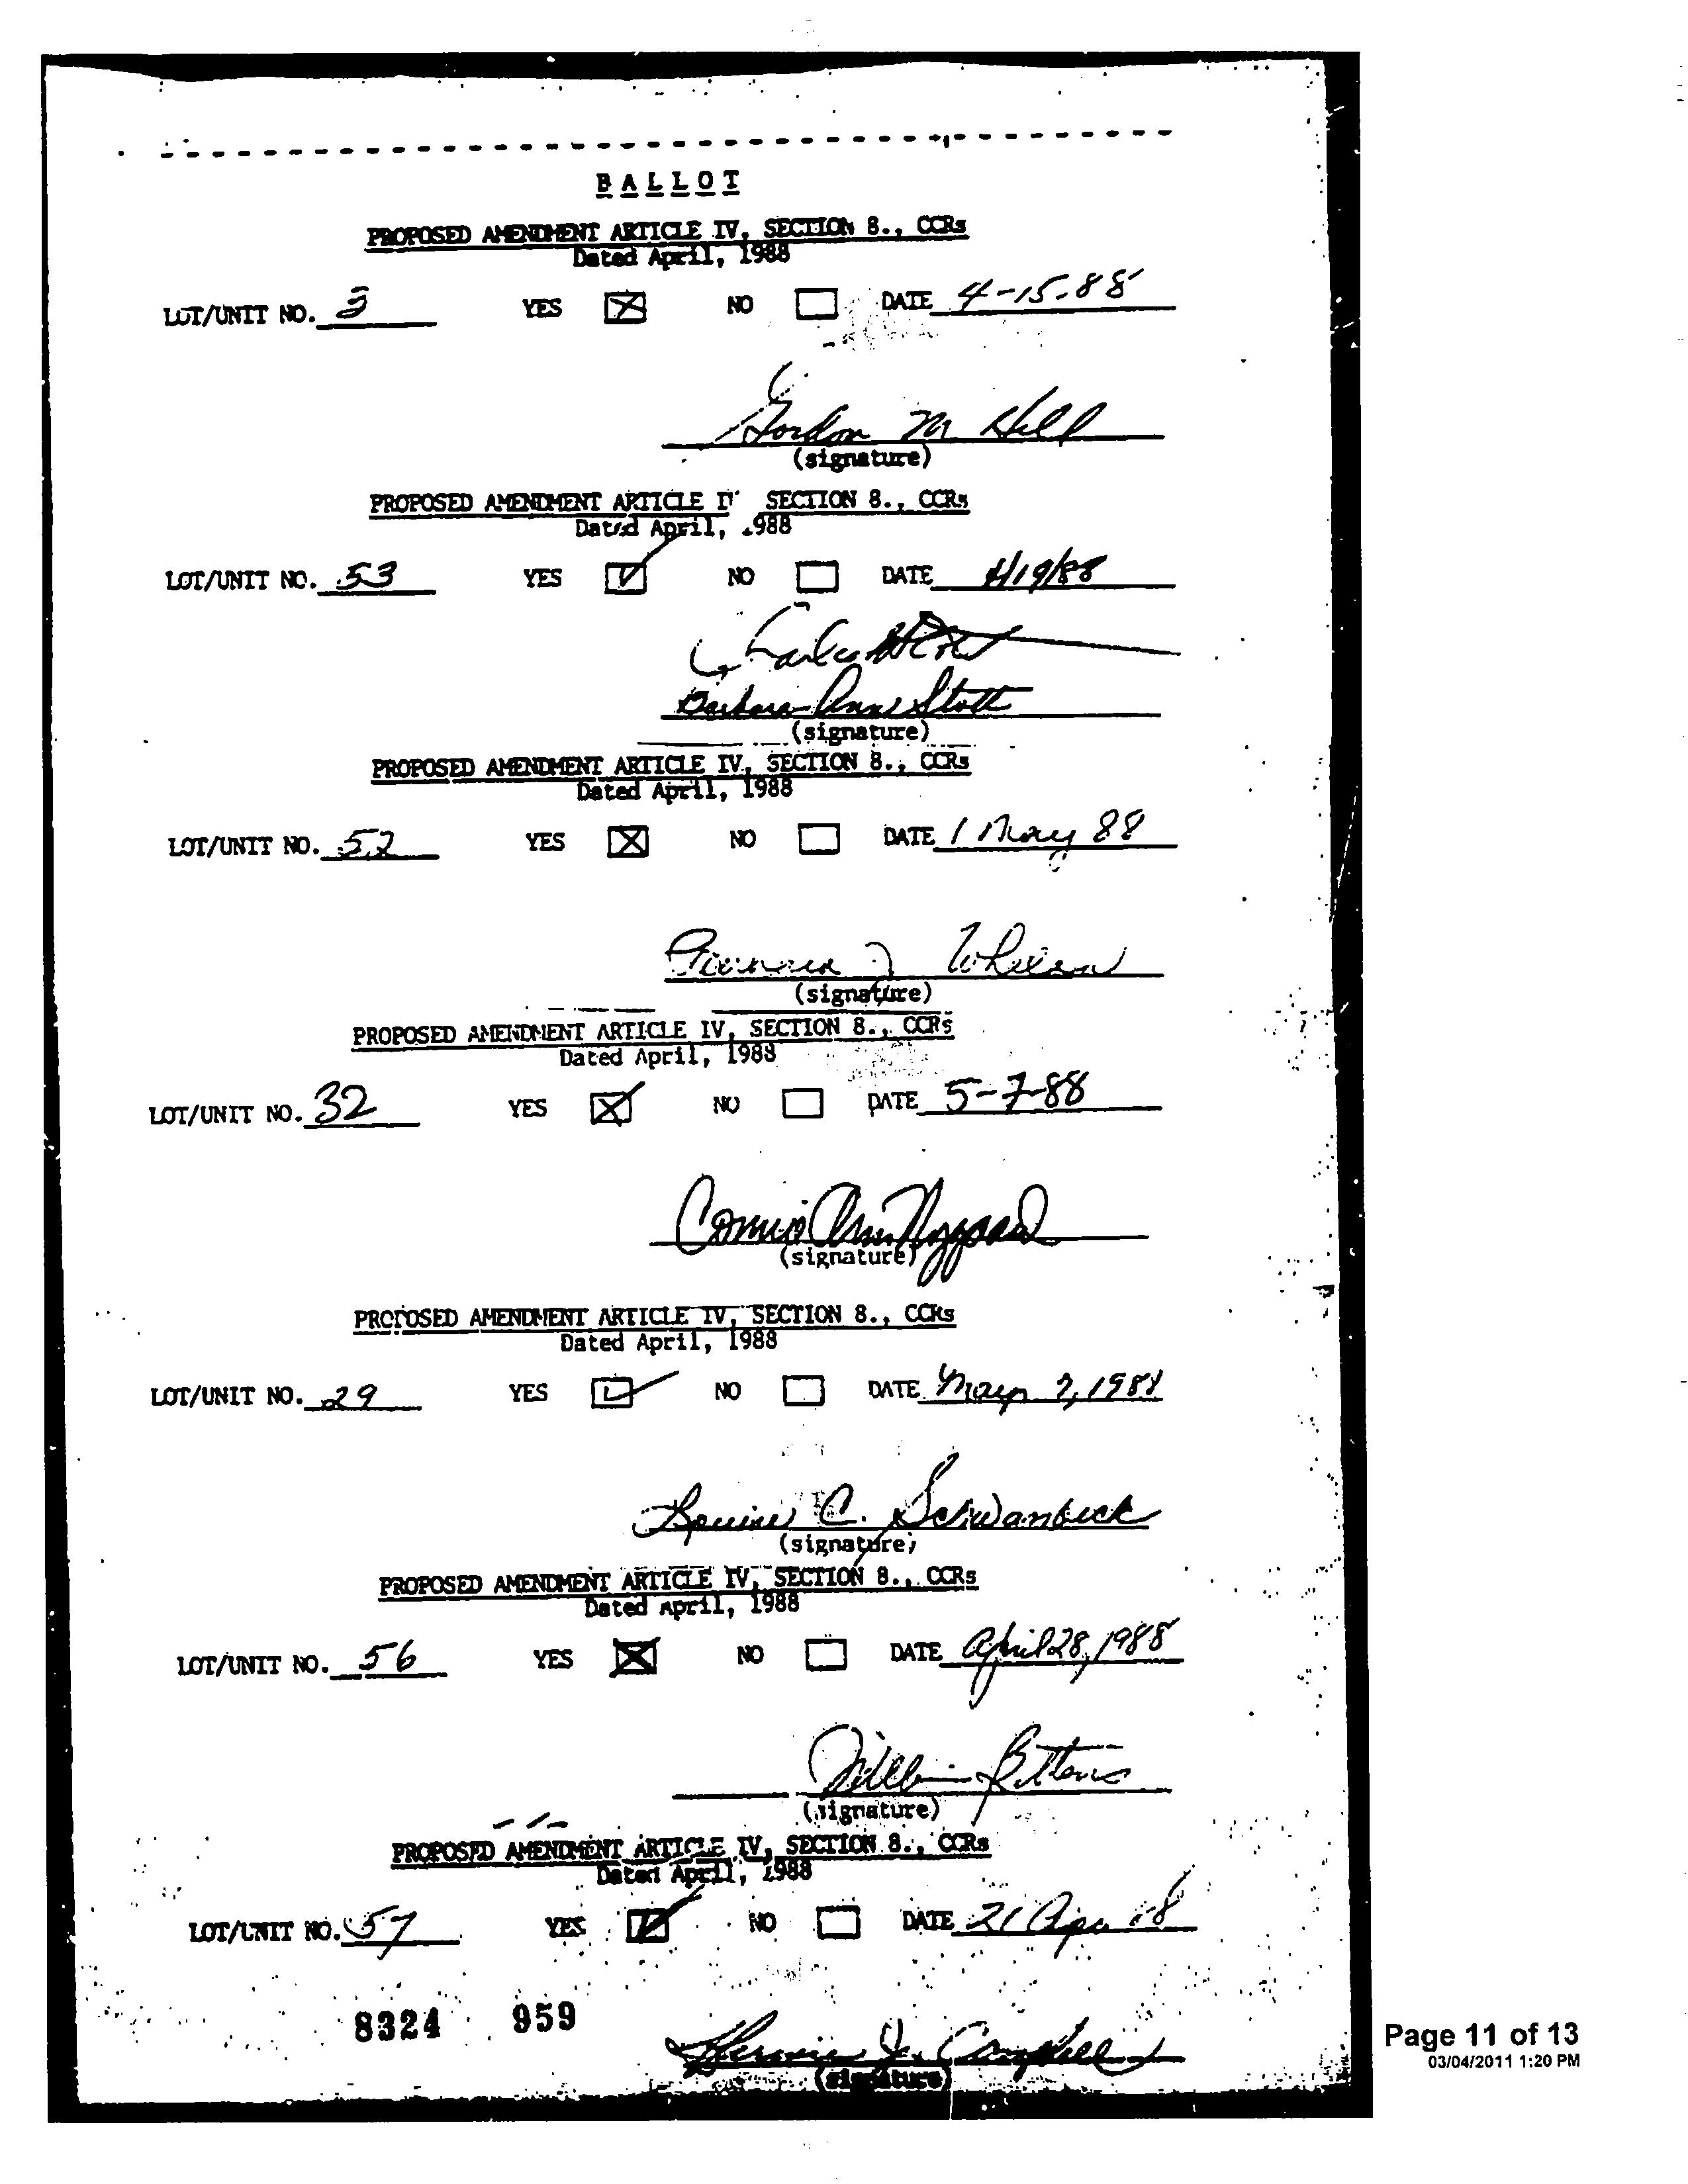 BALLOT
PROPOSED AMENDMENT ARTICLE IV, SECTION 8., CCRs
Dated April, 1988
LOT/UNIT NO. 3 YES X NO DATE 4-15-88
Gordon M Hill
(signature)
PROPOSED AMENDMENT ARTICLE IV SECTION 8., CCRs
Dated April, 1988
LOT/UNIT NO. 53 YES ✓ NO DATE 4/19/88
Charles
Barbara Anne Stott
(signature)
PROPOSED AMENDMENT ARTICLE IV, SECTION 8., CCRs
Dated April, 1988
LOT/UNIT NO. 52 YES X NO DATE 1 May 88
J
(signature)
PROPOSED AMENDMENT ARTICLE IV, SECTION 8., CCRs
Dated April, 1988
LOT/UNIT NO. 32 YES X NO DATE 5-7-88
Connie Ann Nygaard
(signature)
PROPOSED AMENDMENT ARTICLE IV, SECTION 8., CCRs
Dated April, 1988
LOT/UNIT NO. 29 YES ✓ NO DATE May 7, 1988
Louise C. Schwanbeck
(signature)
PROPOSED AMENDMENT ARTICLE IV, SECTION 8., CCRs
Dated April, 1988
LOT/UNIT NO. 56 YES X NO DATE April 28, 1988
(signature)
PROPOSED AMENDMENT ARTICLE IV, SECTION 8., CCRs
Dated April, 1988
LOT/UNIT NO. 57 YES ✓ NO DATE 21 Apr 88
8324 959
J. Campbell
(signature)
Page 11 of 13
03/04/2011 1:20 PM